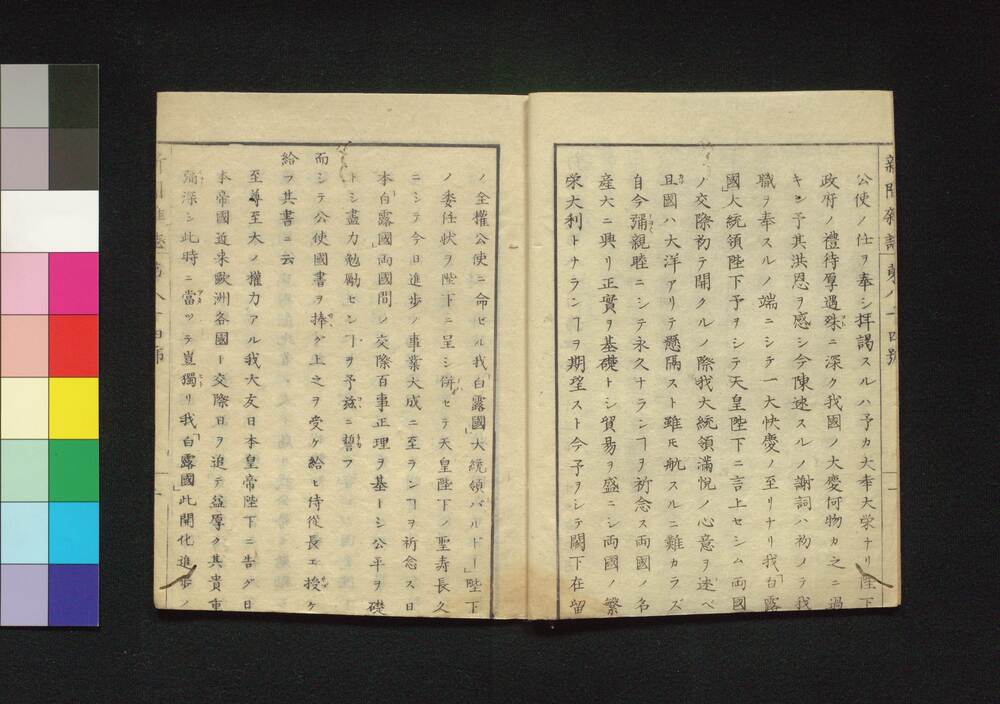 新聞雜誌 第八十四號
公使ノ任ヲ奉シ拝謁スルハ予カ大幸大栄ナリ陛下
政府ノ禮待厚遇殊ニ深ク我國ノ大慶何物カ之ニ過
キン予其洪恩ヲ感シ今陳述スルノ謝詞ハ初メテ我
職ヲ奉スルノ端ニシテ一大快慶ノ至リナリ我「白露
國」大統領陛下予ヲシテ天皇陛下ニ言上セシム両國
ノ交際初テ開クルノ際我大統領満悦ノ心意ヲ述ベ
且國ハ大洋アリテ懸隔スト雖𪜈航スルニ難カラズ
自今彌親睦ニシテ永久ナランヿヲ祈念ス両國ノ名
産大ニ興リ正實ヲ基礎トシ貿易ヲ盛ニシ両國ノ繁
栄大利トナランヿヲ期望スト今予ヲシテ闕下在留
ノ全權公使ニ命セル我「白露國」大統領「パルドー」陛下
ノ委任状ヲ陛下ニ呈シ併セテ天皇陛下ノ聖寿長久
ニシテ今日進歩ノ事業大成ニ至ランヿヲ祈念ス日
本「白露國」両國間ノ交際百事正理ヲ基トシ公平ヲ礎
トシ盡力勉勵センヿヲ予玆ニ誓フ
而シテ公使國書ヲ捧グ上之ヲ受ケ給ヒ侍從長エ授ケ
給フ其書ニ云
至尊至大ノ權力アル我大友日本皇帝陛下ニ告グ日
本帝國近来歐洲各國ト交際日ヲ追テ益厚ク其貴重
彌深シ此時ニ當ツテ豈獨リ我「白露國」此開化進歩ノ